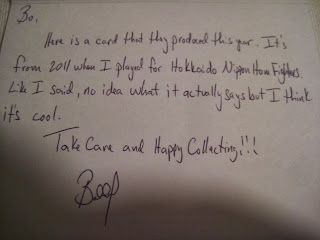 Bo,
Here is a card that they produced this year. It's
from 2011 when I played for Hokkaido Nippon Ham Fighters.
Like I said, no idea what it actually says but I think
it's cool.
Take Care and Happy Collecting!!!